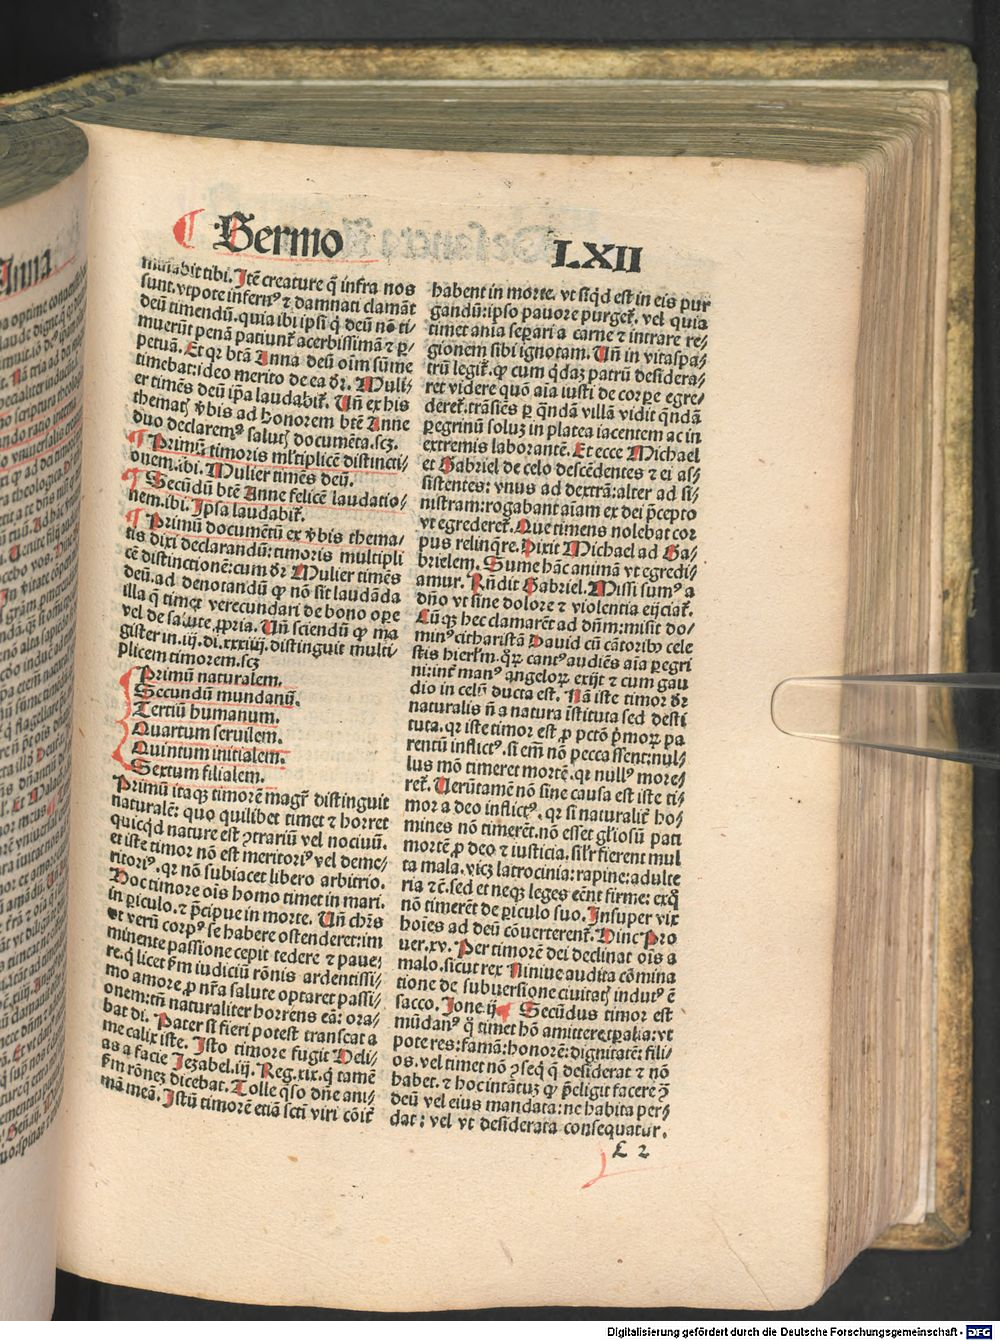 ¶ Sermo LXII
minabit tibi. Itē creature q̄ infra nos
sunt. vtpote infern⁹ ⁊ damnati clamāt
deū timendū. quia ibi ipsi q̇ deū nō ti⸗
muerūt penā patiunt᷑ acerbissimā ⁊ ꝑ⸗
petuā. Et qꝛ btā Anna deū oīm sūme
timebat: ideo merito de ea dꝛ. Muli⸗
er timēs deū ip̄a laudabit᷑. Uñ ex his
thematꝭ v̄bis ad honorem btē Anne
duo declarem⁹ salutꝭ documēta. scꝫ.
¶ Primū timoris ml̓tiplicē distincti⸗
onem. ibi. Mulier timēs deū.
¶ Secūdū btē Anne felicē laudatio⸗
nem. ibi. Ipsa laudabit᷑.
¶ Primū documētū ex v̄bis thema⸗
tis dixi declarandū: timoris multipli
cē distinctionē: cum dꝛ Mulier timēs
deū. ad denotandū ꝙ nō sit laudāda
illa q̄ timet verecundari de bono oꝑe
vel de salute ꝓpria. Uñ sciendū ꝙ ma
gister in. iij. di. xxxiiij. distinguit multi⸗
plicem timorem. scꝫ
Primū naturalem.
Secundū mundanū.
Tertiū humanum.
Quartum seruilem.
Quintum initialem.
Sextum filialem.
Primū itaqꝫ timorē magr̄ distinguit
naturalē: quo quilibet timet ⁊ horret
quicq̇d nature est ꝯtrariū vel nociuū.
et iste timor nō est meritori⁹ vel deme⸗
ritori⁹. qꝛ nō subiacet libero arbitrio.
Hoc timore oīs homo timet in mari.
in ꝑiculo. ⁊ p̄cipue in morte. Uñ chr̄s
vt verū corp⁹ se habere ostenderet: im
minente passione cepit tedere ⁊ paue⸗
re. q̇ licet ẜm iudiciū rōnis ardentissi⸗
mo amore ꝓ nr̄a salute optaret passi⸗
onem: tn̄ naturaliter horrens eā: ora⸗
bat di. Pater si fieri potest transeat a
me calix iste. Isto timore fugit Heli⸗
as a facie Jezabel. iij. Reg. xix. q̇ tamē
ẜm rōnez dicebat. Tolle q̄so dn̄e ani⸗
mā meā. Istū timorē etiā scti viri cōit᷑
habent in morte. vt siq̇d est in eis pur
gandū: ipso pauore purget᷑. vel quia
timet aīa seꝑari a carne ⁊ intrare re⸗
gionem sibi ignotam. Uñ in vitaspa⸗
trū legit᷑. ꝙ cum q̇daꝫ patrū desidera⸗
ret videre quō aīa iusti de corꝑe egre⸗
deret᷑. trāsiēs ꝑ qn̄dā villā vidit qn̄dā
ꝑegrinū soluꝫ in platea iacentem ac in
extremis laborantē. Et ecce Michael
et Gabriel de celo descēdentes ⁊ ei as⸗
sistentes: vnus ad dextrā: alter ad si⸗
nistram: rogabant aīam ex dei p̄cepto
vt egrederet᷑. Que timens nolebat cor
pus relinq̄re. Dixit Michael ad Ga⸗
brielem. Sume hāc animā vt egredi⸗
amur. Rn̄dit Gabriel. Missi sum⁹ a
dn̄o vt sine dolore ⁊ violentia eijciat᷑.
Cūqꝫ hec clamarēt ad dn̄m: misit do⸗
min⁹ citharistā Dauid cū cātorib⁹ cele
stis hierl̓m. qͦꝝ cant⁹ audiēs aīa ꝑegri
ni: int̓ man⁹ angeloꝝ exijt ⁊ cum gau
dio in celū ducta est. Nā iste timor dꝛ
naturalis nō a natura īstituta sed desti
tuta. qꝛ iste timor est ꝓ pctō pͥmoꝝ pa
rentū inflict⁹. si em̄ nō peccassent: nul⸗
lus mō timeret mortē. qꝛ null⁹ more⸗
ret᷑. Uerūtamē nō sine causa est iste ti⸗
mor a deo inflict⁹. qꝛ si naturalit̓ ho⸗
mines nō timerēt. nō esset gl̓iosū pati
mortē ꝓ deo ⁊ iusticia. sil̓r fierent mul
ta mala. vicꝫ latrocinia: rapine: adulte
ria ⁊c̄. sed et neqꝫ leges eēnt firme: ex qͦ
nō timerēt de ꝑiculo suo. Insuper vix
hoīes ad deū cōuerterent᷑. Hinc Pro
uer. xv. Per timorē dei declinat oīs a
malo. sicut rex Niniue audita cōmina
tione de subuersione ciuitatꝭ indut⁹ ē
sacco. Ione. ij. ¶ Secūdus timor est
mūdan⁹ q̇ timet hō amittere tꝑalia: vt
pote res: famā: honorē: dignitatē: fili⸗
os. vel timet nō ꝯseq̇ q̄ desiderat ⁊ nō
habet. ⁊ hoc intāt⁹ ꝙ p̄eligit facere ꝯ̄
deū vel eius mandata: ne habita per⸗
dat: vel vt desiderata consequatur.
L 2
Digitalisierung gefördert durch die Deutsche Forschungsgemeinschaft - DFG